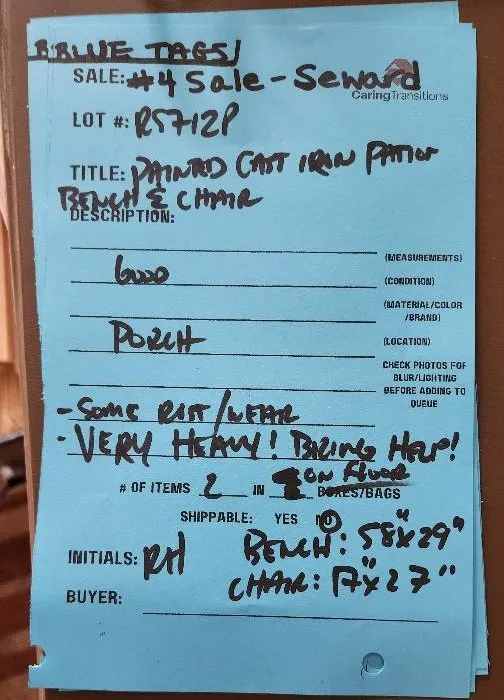 BBLUE TAGS/
SALE: #4 Sale - Seward
CaringTransitions
LOT #: R5712P
TITLE: PAINTED CAST IRON PATIO
BENCH & CHAIR
DESCRIPTION:
(MEASUREMENTS)
GOOD (CONDITION)
(MATERIAL/COLOR
/BRAND)
PORCH (LOCATION)
CHECK PHOTOS FOR
BLUR/LIGHTING
BEFORE ADDING TO
QUEUE
- SOME RUST/WEAR
- VERY HEAVY! BRING HELP!
ON FLOOR
# OF ITEMS 2 IN BOXES/BAGS
SHIPPABLE: YES NO
BENCH: 58"X29"
INITIALS: RH
CHAIR: 17"X27"
BUYER: